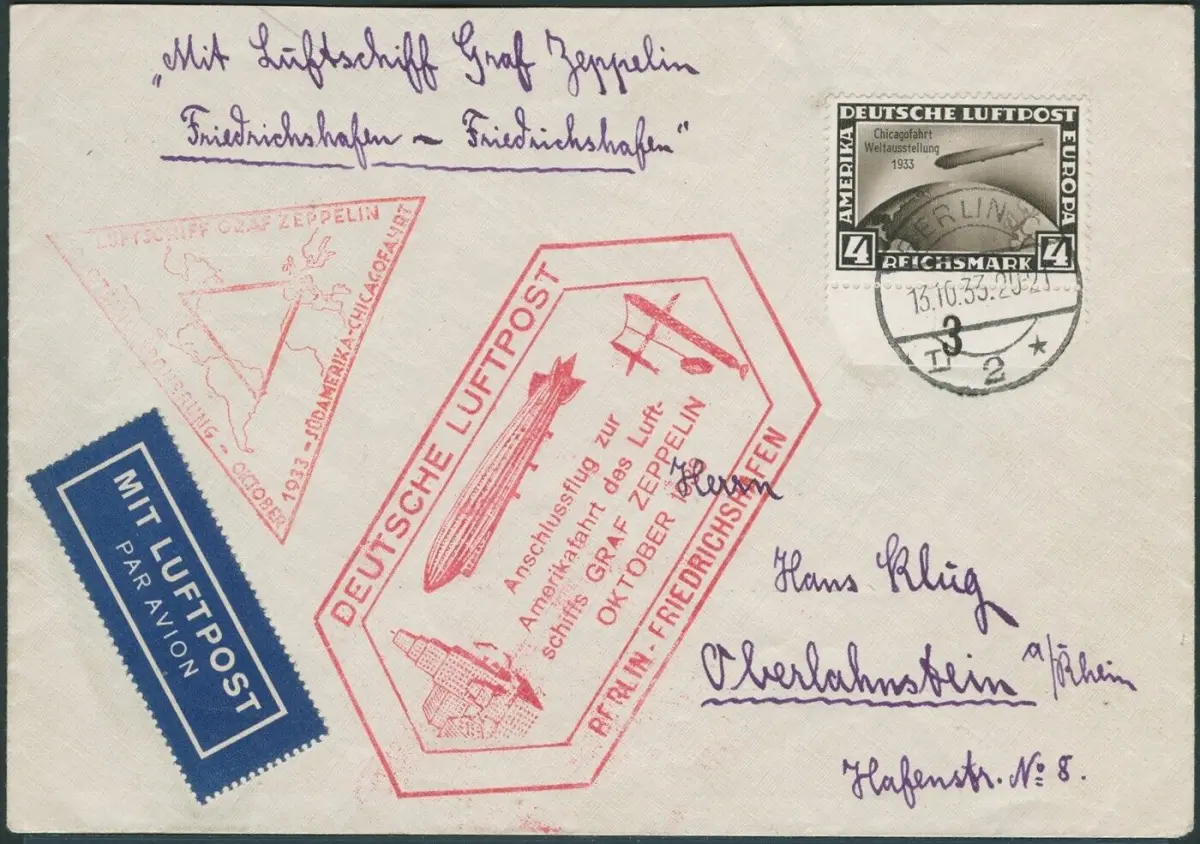 „Mit Luftschiff Graf Zeppelin
Friedrichshafen – Friedrichshafen"
DEUTSCHE LUFTPOST
AMERIKA
EUROPA
Chicagofahrt
Weltausstellung
1933
4 4
REICHSMARK
BERLIN
13.10.33.20-21
3
2 *
LUFTSCHIFF GRAF ZEPPELIN
OKTOBER
1933 - SÜDAMERIKA-CHICAGOFAHRT
DEUTSCHE LUFTPOST
Anschlussflug zur
Amerikafahrt des Luft-
schiffs GRAF ZEPPELIN
OKTOBER
BERLIN-FRIEDRICHSHAFEN
MIT LUFTPOST
PAR AVION
Herrn
Hans Klug
Oberlahnstein a/Rhein
Hafenstr. No 8.